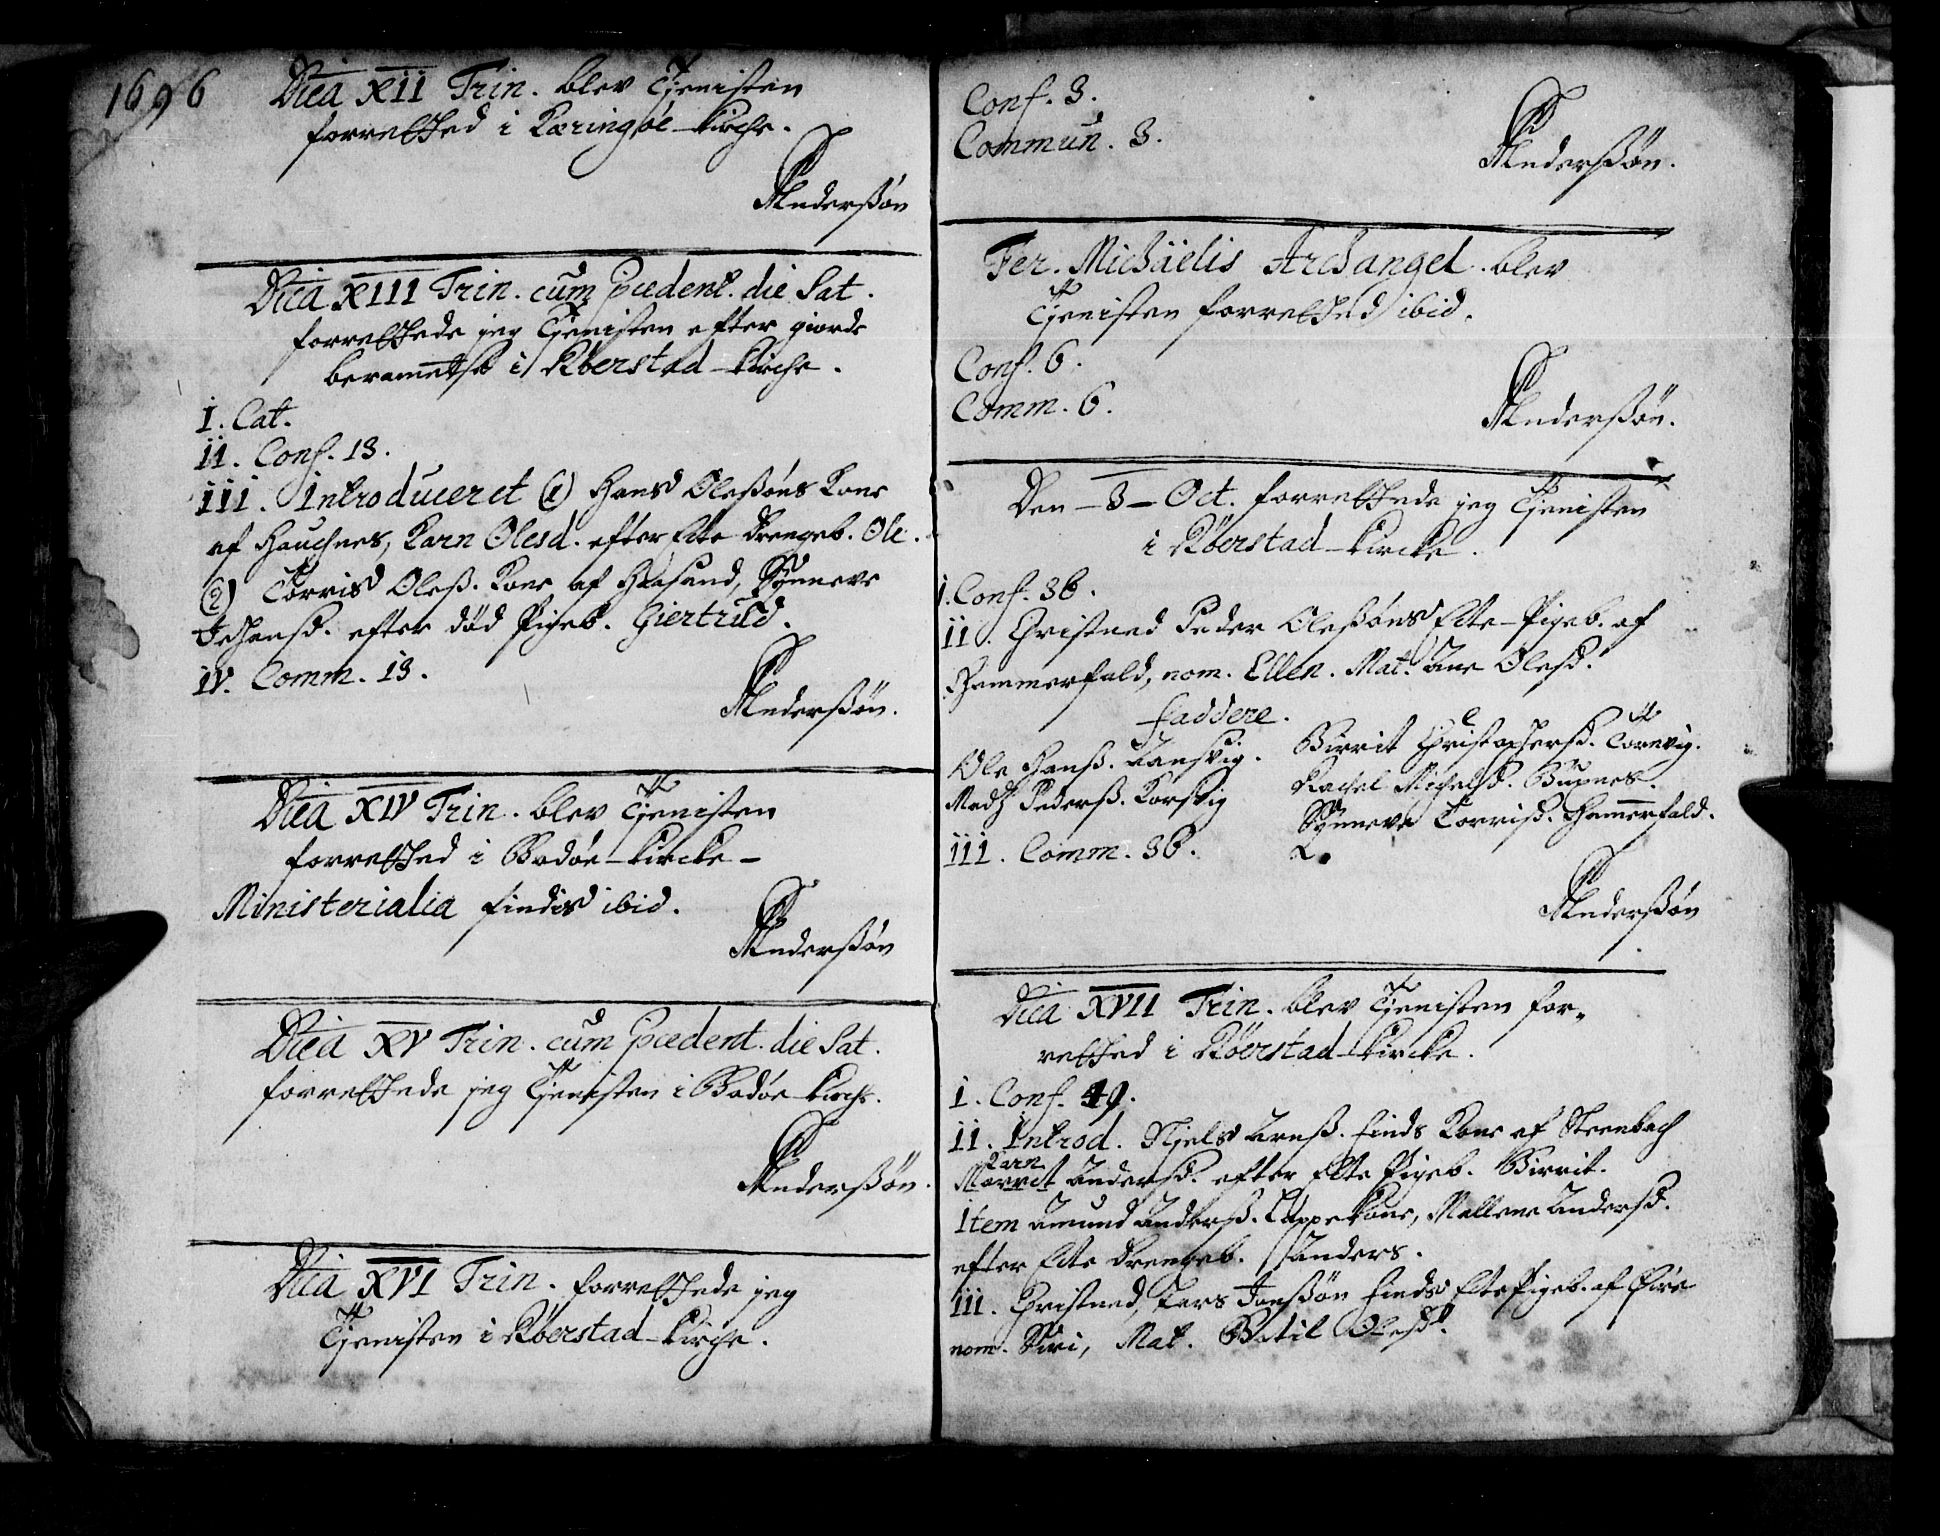 1696
Dca XII Trin. blev Tjenisten
forrettet i Kæringøe-kirche.
Anderßøn
Dca XIII Trin. cum præcedent. die Sat.
forrettede jeg Tjenisten efter giorde
berammelse i Røerstad-kirche.
I. Cat.
II. Conf. 13.
III. Introduceret (1) Hans Oleßøns Kone
af Hauchnes, Karn Olesd. efter Ecte drengeb. Ole.
(2) Torris Oleß. Kone af Haasand, Synneve
Johansd. efter død Pigeb. Giertrud.
IV. Comm. 13.
Anderßøn.
Dca XIV Trin. blev Tjenisten
forrettet i Bodøe-kircke-
Ministerialia findis ibid.
Anderßøn
Dca XV Trin. cum præcedent. die Sat.
forrettede jeg Tjenisten i Bodøe kirche.
Anderßøn.
Dca XVI Trin. forrettede jeg
Tjenisten i Røerstad-kirche.
Conf. 3.
Commun. 3.
Anderßøn.
Fer. Michäelis Archangel. blev
Tjenisten forrettet ibid.
Conf. 6.
Comm. 6.
Anderßøn.
Den-3-Oct. forrettede jeg Tjenisten
i Røerstad-kircke.
I. Conf. 36.
II. Christned Peder Oleßøns Ecte-Pigeb. af
Hammerfald, nom. Ellen. Mat. Ane Olesd.
faddere.
Ole Hanß. Tansvig. Birrit Christophersd. Tornvig.
Madz Pederß. Korsvig Rachel Michelsd. Bupnes.
Synneve Torrisd. Hamerfald.
III. Comm. 36.
Anderßøn
Dca XVII Trin. blev Tjenisten for-
rettet i Røerstad-kircke.
I. Conf. 49.
II. Introd. Niels Arnß. finds Kone af Steenbach
Karn
Marrit Andersd. efter Ecte Pigeb. Birrit.
Item Amund Anderß. Lappe kone, Mallene Andersd.
efter Ecte drengeb. Anders.
III. Christned, Lars Jonßøn finds Ecte Pigeb. af
nom. Siri, Mat. Botil Olesd.